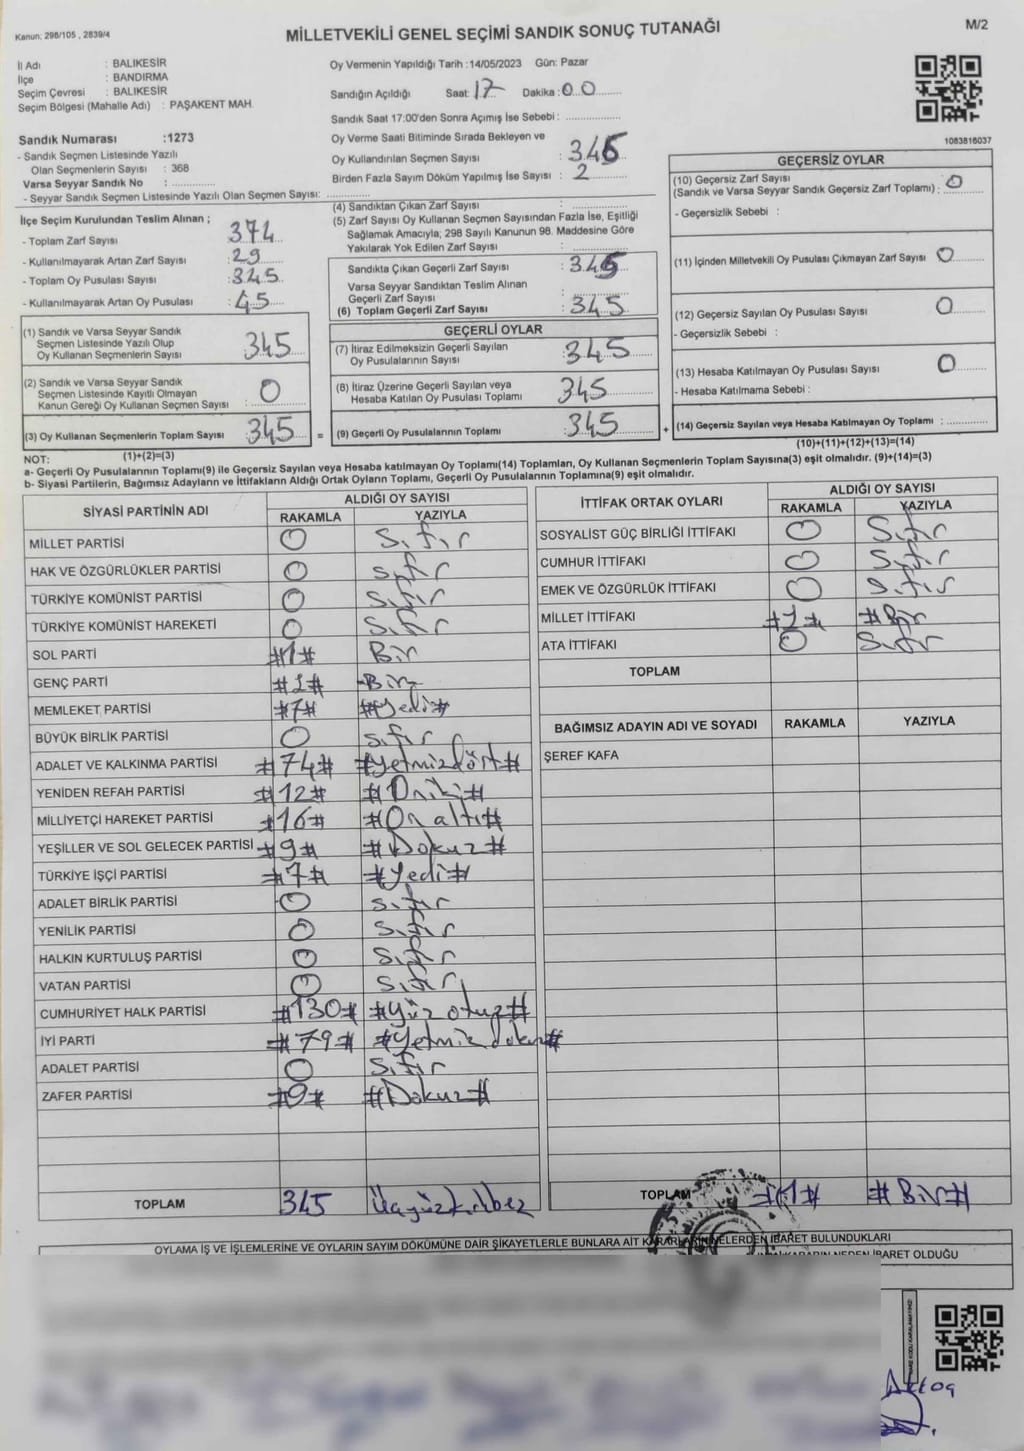 Kanun: 298/105 , 2839/4
MİLLETVEKİLİ GENEL SEÇİMİ SANDIK SONUÇ TUTANAĞI
M/2
İl Adı : BALIKESİR
İlçe : BANDIRMA
Seçim Çevresi : BALIKESİR
Seçim Bölgesi (Mahalle Adı) : PAŞAKENT MAH.
Oy Vermenin Yapıldığı Tarih :14/05/2023 Gün: Pazar
Sandığın Açıldığı Saat: 17 Dakika : 00
Sandık Saat 17:00'den Sonra Açımış İse Sebebi :
1083816037
Sandık Numarası :1273
- Sandık Seçmen Listesinde Yazılı
Olan Seçmenlerin Sayısı : 368
Varsa Seyyar Sandık No :
- Seyyar Sandık Seçmen Listesinde Yazılı Olan Seçmen Sayısı:
Oy Verme Saati Bitiminde Sırada Bekleyen ve
Oy Kullandırılan Seçmen Sayısı : 345
Birden Fazla Sayım Döküm Yapılmış İse Sayısı : 2
İlçe Seçim Kurulundan Teslim Alınan ;
- Toplam Zarf Sayısı : 374
- Kullanılmayarak Artan Zarf Sayısı : 29
- Toplam Oy Pusulası Sayısı : 345
- Kullanılmayarak Artan Oy Pusulası : 45
(1) Sandık ve Varsa Seyyar Sandık
Seçmen Listesinde Yazılı Olup
Oy Kullanan Seçmenlerin Sayısı : 345
(2) Sandık ve Varsa Seyyar Sandık
Seçmen Listesinde Kayıtlı Olmayan
Kanun Gereği Oy Kullanan Seçmen Sayısı : 0
(3) Oy Kullanan Seçmenlerin Toplam Sayısı : 345 =
(1)+(2)=(3)
(4) Sandıktan Çıkan Zarf Sayısı :
(5) Zarf Sayısı Oy Kullanan Seçmen Sayısından Fazla İse, Eşitliği
Sağlamak Amacıyla; 298 Sayılı Kanunun 98. Maddesine Göre
Yakılarak Yok Edilen Zarf Sayısı :
Sandıkta Çıkan Geçerli Zarf Sayısı : 345
Varsa Seyyar Sandıktan Teslim Alınan
Geçerli Zarf Sayısı :
(6) Toplam Geçerli Zarf Sayısı : 345
GEÇERLİ OYLAR
(7) İtiraz Edilmeksizin Geçerli Sayılan
Oy Pusulalarının Sayısı : 345
(8) İtiraz Üzerine Geçerli Sayılan veya
Hesaba Katılan Oy Pusulası Toplamı : 345
(9) Geçerli Oy Pusulalarının Toplamı : 345 +
GEÇERSİZ OYLAR
(10) Geçersiz Zarf Sayısı
(Sandık ve Varsa Seyyar Sandık Geçersiz Zarf Toplamı) : 0
- Geçersizlik Sebebi :
(11) İçinden Milletvekili Oy Pusulası Çıkmayan Zarf Sayısı : 0
(12) Geçersiz Sayılan Oy Pusulası Sayısı : 0
- Geçersizlik Sebebi :
(13) Hesaba Katılmayan Oy Pusulası Sayısı : 0
- Hesaba Katılmama Sebebi :
(14) Geçersiz Sayılan veya Hesaba Katılmayan Oy Toplamı :
(10)+(11)+(12)+(13)=(14)
NOT:
a- Geçerli Oy Pusulalarının Toplamı(9) ile Geçersiz Sayılan veya Hesaba katılmayan Oy Toplamı(14) Toplamları, Oy Kullanan Seçmenlerin Toplam Sayısına(3) eşit olmalıdır. (9)+(14)=(3)
b- Siyasi Partilerin, Bağımsız Adayların ve İttifakların Aldığı Ortak Oyların Toplamı, Geçerli Oy Pusulalarının Toplamına(9) eşit olmalıdır.
SİYASİ PARTİNİN ADI
ALDIĞI OY SAYISI
RAKAMLA YAZIYLA
MİLLET PARTİSİ 0 Sıfır
HAK VE ÖZGÜRLÜKLER PARTİSİ 0 sıfır
TÜRKİYE KOMÜNİST PARTİSİ 0 sıfır
TÜRKİYE KOMÜNİST HAREKETİ 0 sıfır
SOL PARTİ #1# Bir
GENÇ PARTİ #1# -Bir-
MEMLEKET PARTİSİ #7# #Yedi#
BÜYÜK BİRLİK PARTİSİ 0 sıfır
ADALET VE KALKINMA PARTİSİ #74# #Yetmişdört#
YENİDEN REFAH PARTİSİ #12# #Oniki#
MİLLİYETÇİ HAREKET PARTİSİ #16# #On altı#
YEŞİLLER VE SOL GELECEK PARTİSİ #9# #Dokuz#
TÜRKİYE İŞÇİ PARTİSİ #7# #Yedi#
ADALET BİRLİK PARTİSİ 0 sıfır
YENİLİK PARTİSİ 0 sıfır
HALKIN KURTULUŞ PARTİSİ 0 sıfır
VATAN PARTİSİ 0 sıfır
CUMHURİYET HALK PARTİSİ #130# #Yüz otuz#
İYİ PARTİ #79# #Yetmiş dokuz#
ADALET PARTİSİ 0 Sıfır
ZAFER PARTİSİ #9# #Dokuz#
TOPLAM 345 Üçyüzkırkbeş
İTTİFAK ORTAK OYLARI
ALDIĞI OY SAYISI
RAKAMLA YAZIYLA
SOSYALİST GÜÇ BİRLİĞİ İTTİFAKI 0 Sıfır
CUMHUR İTTİFAKI 0 Sıfır
EMEK VE ÖZGÜRLÜK İTTİFAKI 0 sıfır
MİLLET İTTİFAKI #1# #Bir
ATA İTTİFAKI 0 Sıfır
TOPLAM
BAĞIMSIZ ADAYIN ADI VE SOYADI RAKAMLA YAZIYLA
ŞEREF KAFA
TOPLAM #1# #Bir#
OYLAMA İŞ VE İŞLEMLERİNE VE OYLARIN SAYIM DÖKÜMÜNE DAİR ŞİKAYETLERLE BUNLARA AİT KARARLARIN NELERDEN İBARET BULUNDUKLARI
NEDEN İBARET OLDUĞU